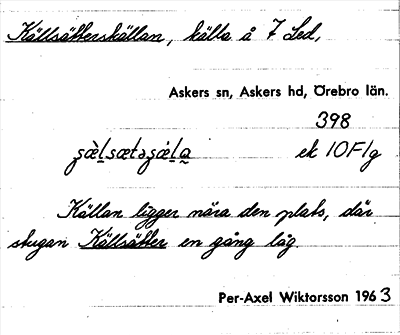 Källsätterskällan, källa å 7 Led,
Askers sn, Askers hd, Örebro län.
398
ek 10F1g
Källan ligger nära den plats, där
stugan Källsätter en gång låg.
Per-Axel Wiktorsson 1963